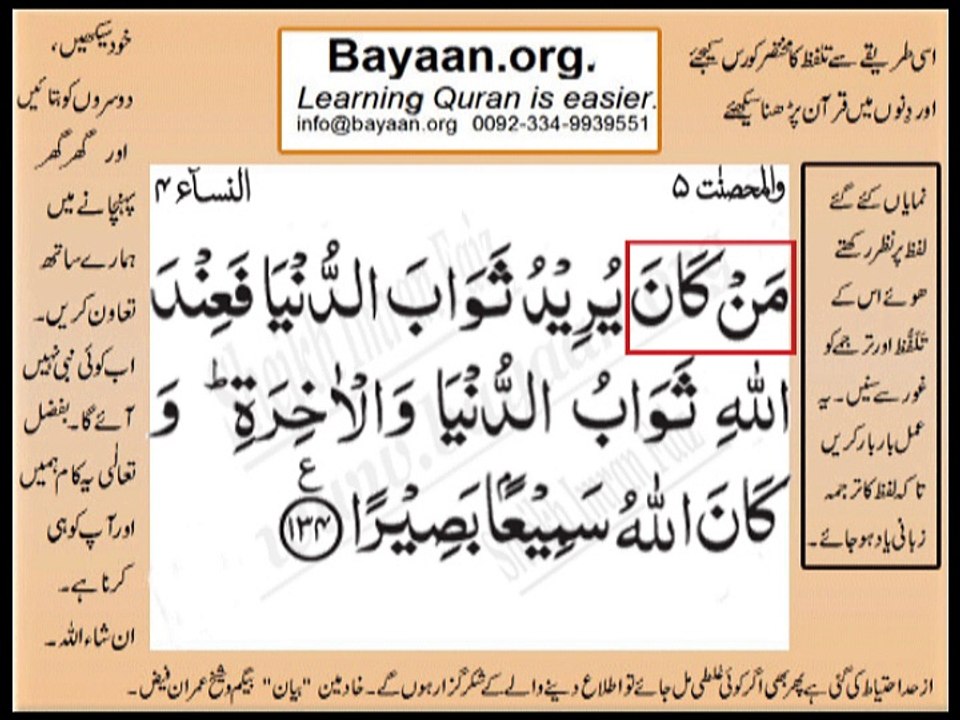 Bayaan.org.
Learning Quran is easier.
info@bayaan.org 0092-334-9939551
اسی طریقے سے تلفظ کا مختصر کورس کیجئے
اور دِنوں میں قرآن پڑھنا سیکھئے
والمحصنٰت ۵
النسآء ۴
مَنْ كَانَ يُرِيْدُ ثَوَابَ الدُّنْيَا فَعِنْدَ
اللّٰهِ ثَوَابُ الدُّنْيَا وَالْاٰخِرَةِ ؕ وَ
كَانَ اللّٰهُ سَمِيْعًۢا بَصِيْرًا ﴿۱۳۴﴾ ع
نمایاں کئے گئے
لفظ پر نظر رکھتے
ھوئے اس کے
تَلَفُّظ اور ترجمے کو
غور سے سنیں۔ یہ
عمل بار بار کریں
تا کہ لفظ کا ترجمہ
زبانی یاد ہو جائے۔
خود سیکھیں،
دوسروں کو بتائیں
اور گھر گھر
پہنچانے میں
ہمارے ساتھ
تعاون کریں۔
اب کوئی نبی نہیں
آئے گا۔ بفضل
تعالٰی یہ کام ہمیں
اور آپ کو ہی
کرنا ہے۔
ان شاء اللہ۔
از حد احتیاط کی گئی ہے پھر بھی اگر کوئی غلطی مل جائے تو اطلاع دینے والے کے شکر گزار ہوں گے۔ خادمین "بیان" بیگم و شیخ عمران فیض۔